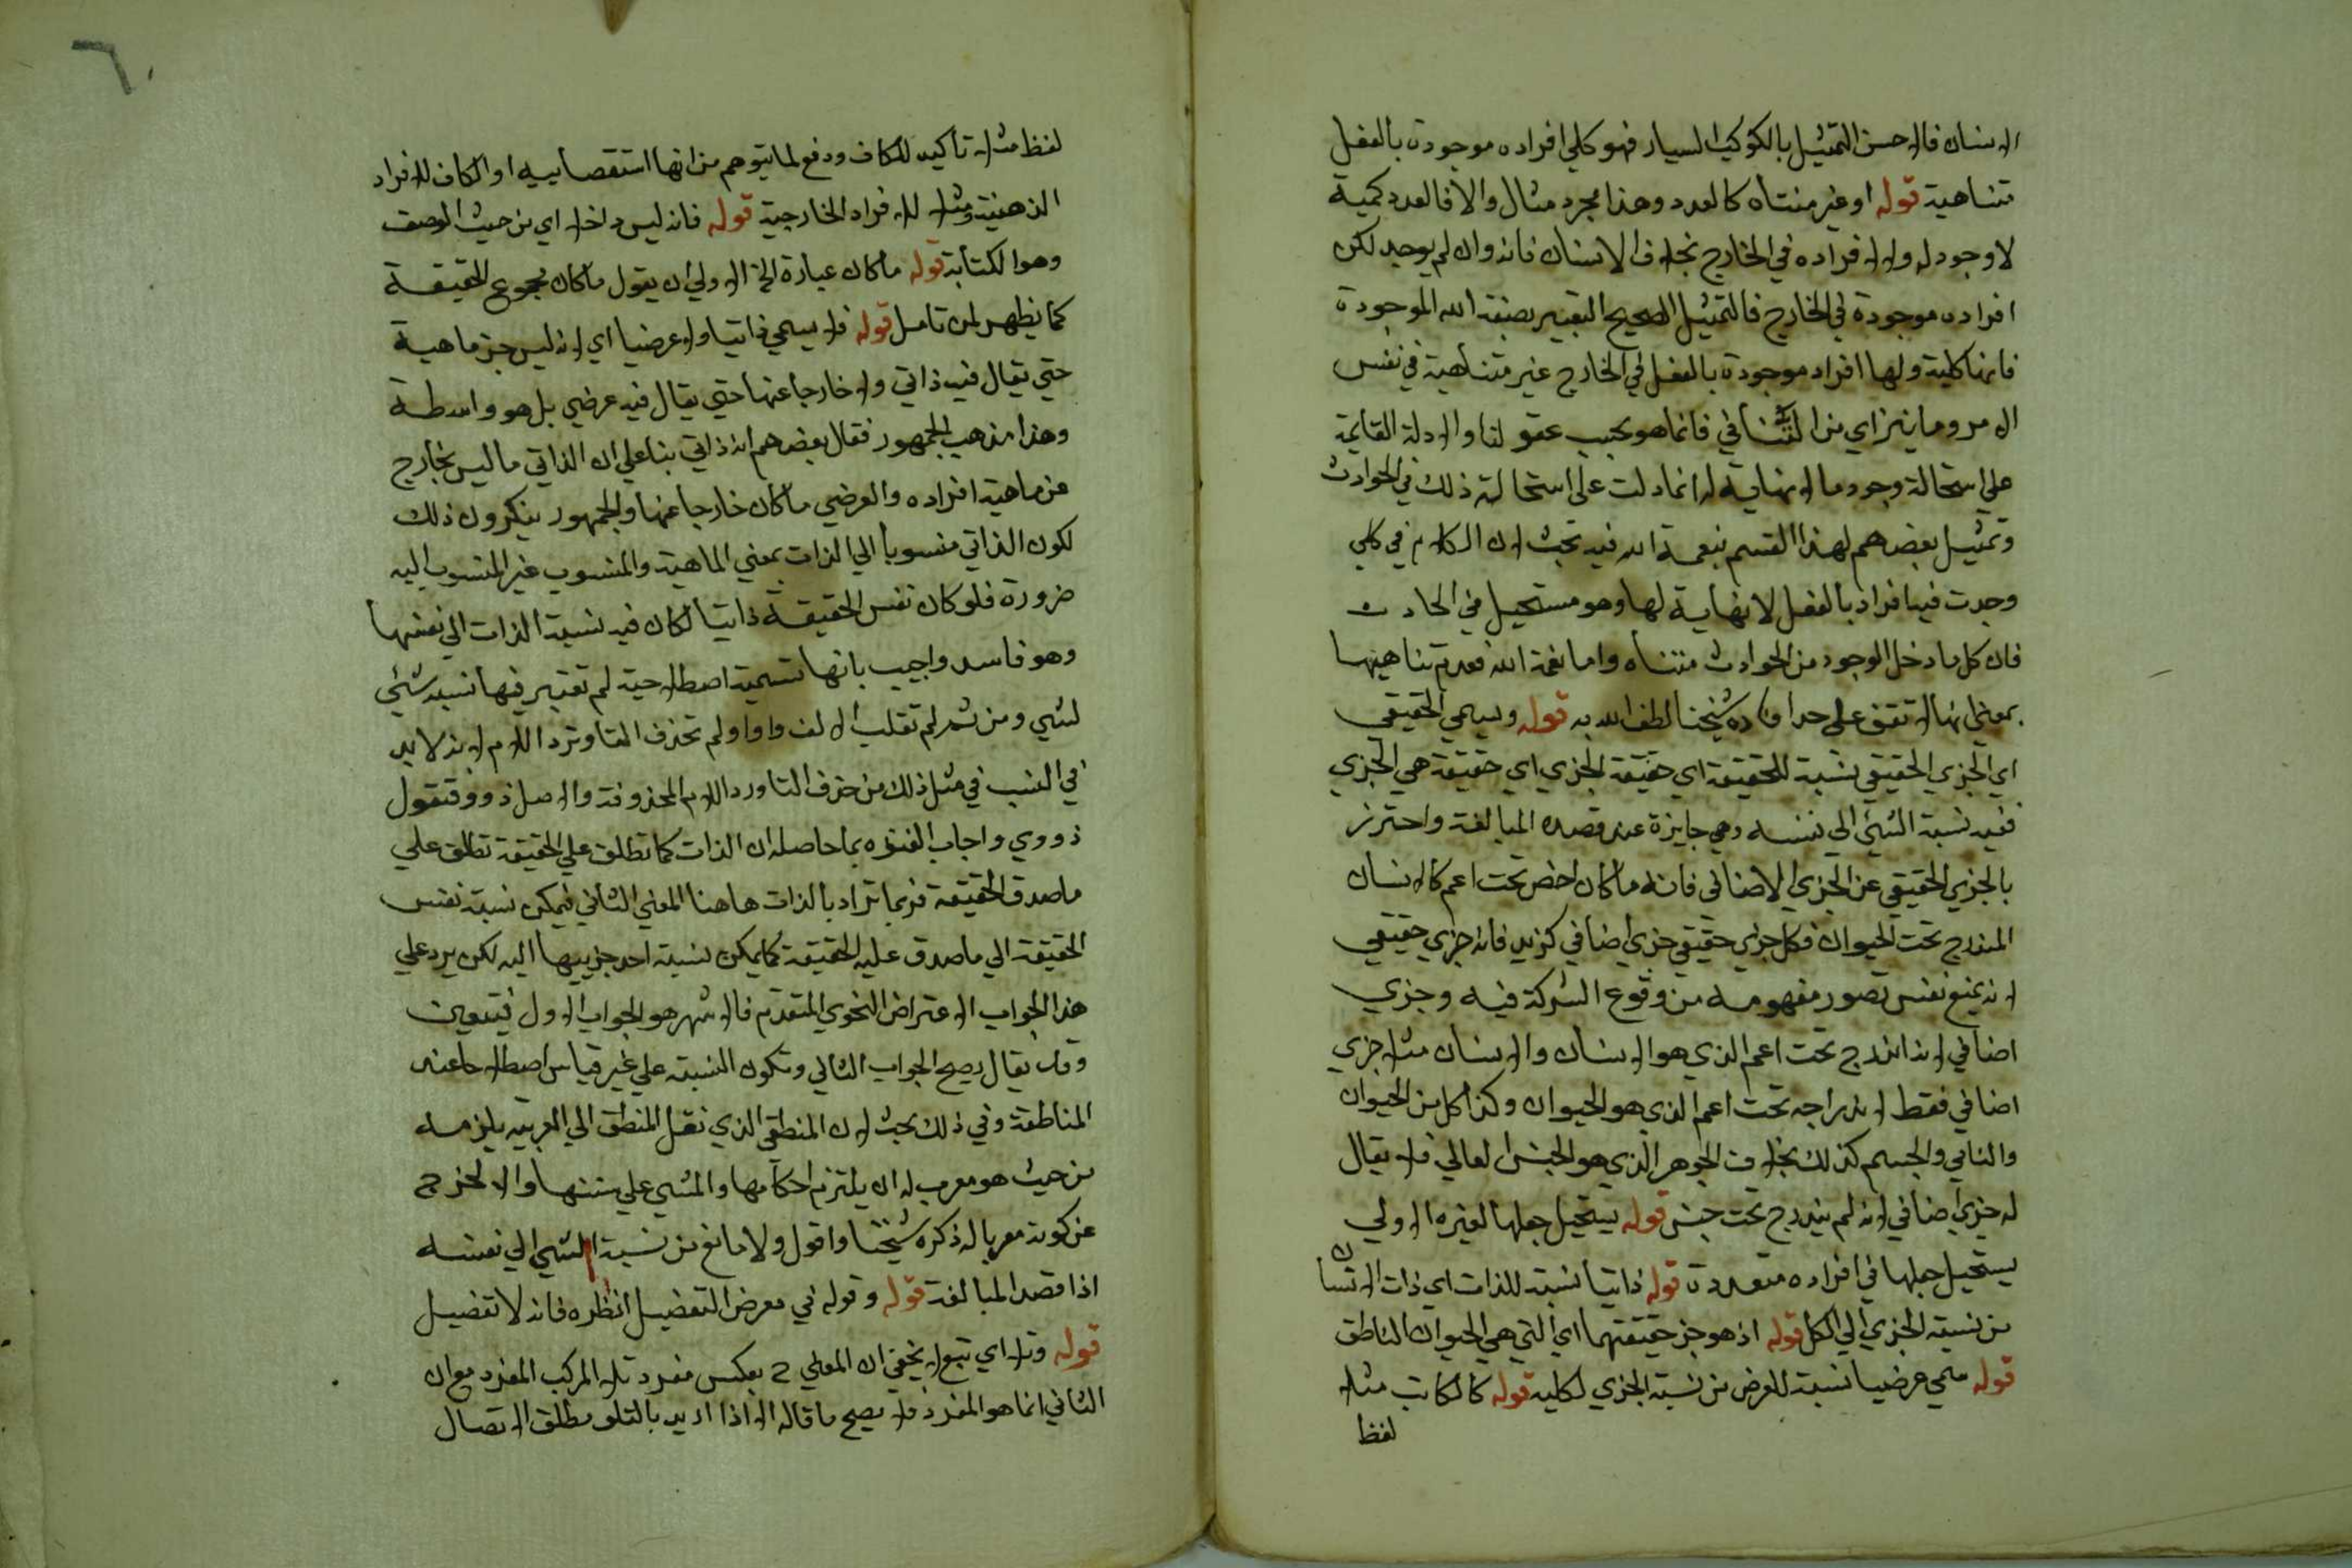 الانسان فالاحسن التمثيل بالكوكب السيار فهو كلي افراده موجودة بالفعل
متناهية قوله او غير متناه كالعدد وهذا مجرد مثال والا فالعدد كمية
لا وجود له ولا لافراده في الخارج بخلاف الانسان فانه وان لم يوجد لكن
افراده موجودة في الخارج فالتمثيل الصحيح التعبير بصفة الله الموجودة
فانها كلية ولها افراد موجودة بالفعل في الخارج غير متناهية في نفس
الامر وما يتراي من التنافي فانما هو بحسب عقولنا والادلة القايمة
علي استحالة وجود ما لا نهاية له انما دلت علي استحالة ذلك في الحوادث
وتمثيل بعضهم لهذا القسم بنعمة الله فيه بحث لان الكلام في كلي
وجدت فيه افراد بالفعل لا نهاية لها وهو مستحيل في الحادث
فان كل ما دخل الوجود من الحوادث متناه واما نعمة الله فعدم تناهيها
بمعني انها لا تقف علي حد افاده شيخنا لطف الله به قوله ويسمي الحقيقي
اي الجزي الحقيقي نسبة للحقيقة اي حقيقة الجزي اي حقيقة هي الجزي
ففيه نسبة الشيء الي نفسه وهي جايزة عند قصد المبالغة واحترز
بالجزي الحقيقي عن الجزي الاضافي فانه ما كان اخص تحت اعم كالانسان
المندرج تحت الحيوان فكل جزي حقيقي جزي اضافي كزيد فانه جزي حقيقي
لانه يمنع نفس تصور مفهومه من وقوع الشركة فيه وجزي
اضافي لانه اندرج تحت اعم الذي هو الانسان والانسان مثلا جزي
اضافي فقط لاندراجه تحت اعم الذي هو الحيوان وكذا كل من الحيوان
والنامي والجسم كذلك بخلاف الجوهر الذي هو الجنس العالي فلا يقال
له جزي اضافي لانه لم يندرج تحت جنس قوله يستحيل جعلها لغيره الاولي
يستحيل جعلها في افراده متعددة قوله ذاتيا نسبة للذات اي ذات الانسان
من نسبة الجزي الي الكل قوله اذ هو جز حقيقتهما اي التي هي الحيوان الناطق
قوله سمي عرضيا نسبة للعرض من نسبة الجزي لكليه قوله كالكاتب مثلا
لفظ
٦
لفظ مثلا تاكيد للكاف ودفع لما يتوهم من انها استقصاييه او الكاف للافراد
الذهنية ومثلا للافراد الخارجية قوله فانه ليس داخلا اي من حيث الوصف
وهو الكتابة قوله ما كان عبارة الخ الاولي ان يقول ما كان مجموع الحقيقة
كما يظهر لمن تامل قوله فلا يسمي ذاتيا ولا عرضيا اي لانه ليس جز ماهية
حتي يقال فيه ذاتي ولا خارجا عنها حتي يقال فيه عرضي بل هو واسطة
وهذا مذهب الجمهور فقال بعضهم انه ذاتي بنا علي ان الذاتي ما ليس بخارج
عن ماهية افراده والعرضي ما كان خارجا عنها والجمهور ينكرون ذلك
لكون الذاتي منسوبا الي الذات بمعني الماهية والمنسوب غير المنسوب اليه
ضرورة فلو كان نفس الحقيقة ذاتيا لكان فيه نسبة الذات الي نفسها
وهو فاسد واجيب بانها تسمية اصطلاحية لم تعتبر فيها نسبة شيئ
لشيي ومن ثم لم تقلب الالف واوا ولم تحذف التا وترد اللام لانه لا بد
في النسب في مثل ذلك من حذف التا ورد اللام المحذوفة والاصل ذووقتقول
ذووي واجاب الفنوه بما حاصله ان الذات كما تطلق علي الحقيقة تطلق علي
ما صدق الحقيقة فربما تراد بالذات هاهنا المعني الثاني فيمكن نسبة نفس
الحقيقة الي ما صدق عليه الحقيقة كما يمكن نسبة احد جزييها اليه لكن يرد علي
هذا الجواب الاعتراض النحوي المتقدم فالاشهر هو الجواب الاول فيتعين
وقد يقال يصح الجواب الثاني وتكون النسبة علي غير قياس اصطلاحا عند
المناطقة وفي ذلك بحث لان المنطقي الذي نقل المنطق الي العربيه يلزمه
من حيث هو معرب له ان يلتزم احكامها والمشي علي سننها والا لخرج
عن كونه معربا له ذكره شيخنا واقول ولا مانع من نسبة الشيي الي نفسه
اذا قصد المبالغة قوله وقوله في معرض التفضيل انظره فانه لا تفضيل
قوله وتلا اي تبع لا يخفي ان المعني ح بعكس مفرد تلا المركب المفرد مع ان
الثاني انما هو المفرد فلا يصح ما قاله الا اذا اريد بالتلو مطلق الاتصال